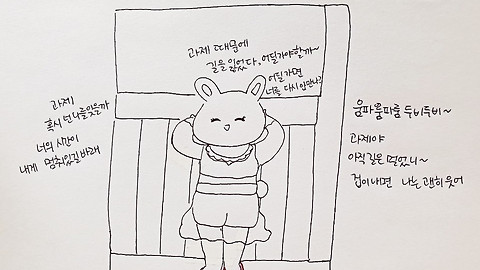 과제 때문에
길을 잃었다, 어딜가야할까~
어딜가면
너를 다시 만날까?
과제
혹시 넌 나를 잊을까
너의 시간이
내게 멈춰있길바래
움파룸파룸 두비두바~
과제야
아직 갈은 멀었니~
겁이나면 나는 괜히 웃어